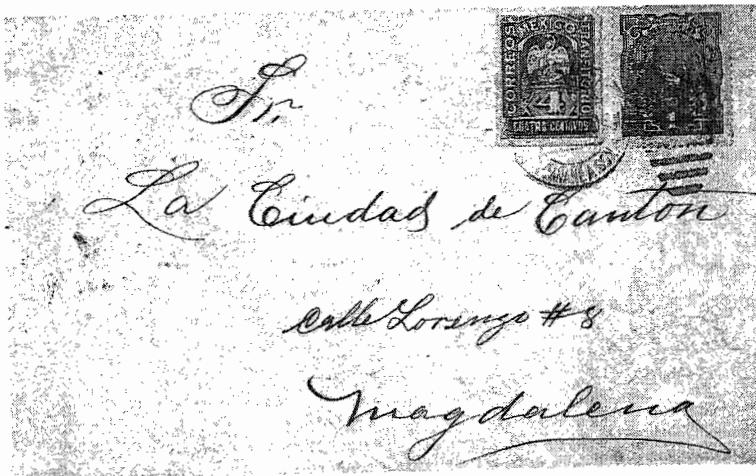 CORREOS MEXICO
4
CUATRO CENTAVOS
Sr.
La Ciudad de Canton
calle Lorenzo #8
Magdalena